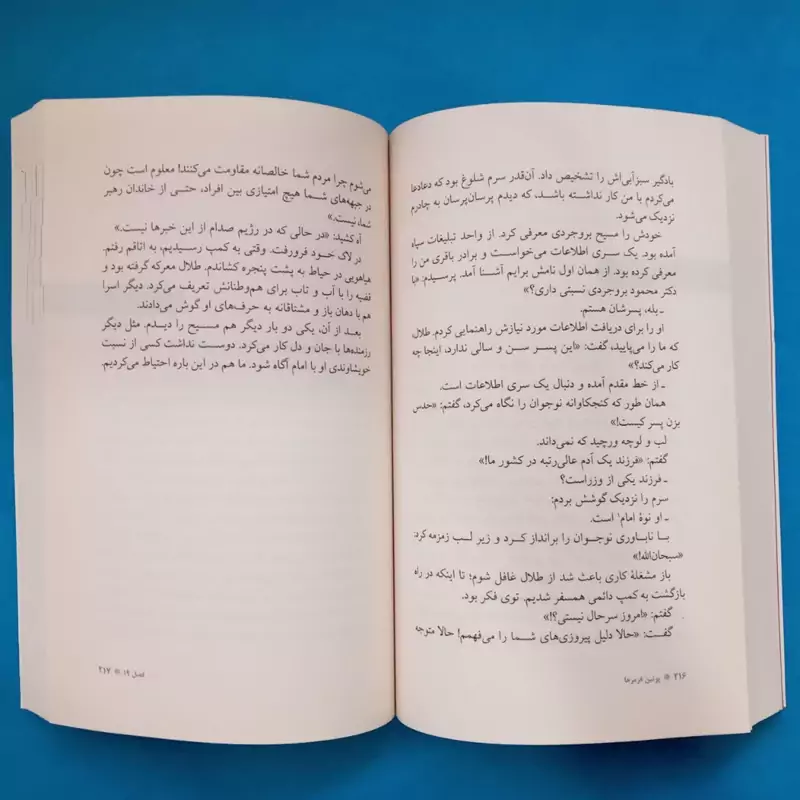 بادگیر سبزآبی‌اش را تشخیص داد. آن‌قدر سرم شلوغ بود که دعادعا
می‌کردم با من کار نداشته باشد، که دیدم پرسان‌پرسان به چادرم
نزدیک می‌شود.
خودش را مسیح بروجردی معرفی کرد. از واحد تبلیغات سپاه
آمده بود. یک سری اطلاعات می‌خواست و برادر باقری من را
معرفی کرده بود. از همان اول نامش برایم آشنا آمد. پرسیدم: «با
دکتر محمود بروجردی نسبتی داری؟»
ـ بله، پسرشان هستم.
او را برای دریافت اطلاعات مورد نیازش راهنمایی کردم. طلال،
که ما را می‌پایید، گفت: «این پسر سن و سالی ندارد، اینجا چه
کار می‌کند؟»
ـ از خط مقدم آمده و دنبال یک سری اطلاعات است.
همان طور که کنجکاوانه نوجوان را نگاه می‌کرد، گفتم: «حدس
بزن پسر کیست!»
لب و لوچه ورچید که نمی‌داند.
گفتم: «فرزند یک آدم عالی‌رتبه در کشور ما!»
ـ فرزند یکی از وزراست؟
سرم را نزدیک گوشش بردم:
ـ او نوهٔ امام۱ است.
با ناباوری نوجوان را برانداز کرد و زیر لب زمزمه کرد:
«سبحان‌الله!»
باز مشغلهٔ کاری باعث شد از طلال غافل شوم؛ تا اینکه در راه
بازگشت به کمپ دائمی همسفر شدیم. توی فکر بود.
گفتم: «امروز سرحال نیستی؟!»
گفت: «حالا دلیل پیروزی‌های شما را می‌فهمم! حالا متوجه
۲۱۶ * پوتین قرمزها
می‌شوم چرا مردم شما خالصانه مقاومت می‌کنند! معلوم است چون
در جبهه‌های شما هیچ امتیازی بین افراد، حتی از خاندان رهبر
شما، نیست.»
آه کشید: «در حالی که در رژیم صدام از این خبرها نیست.»
در لاک خود فرورفت. وقتی به کمپ رسیدیم، به اتاقم رفتم.
هیاهویی در حیاط به پشت پنجره کشاندم. طلال معرکه گرفته بود و
قضیه را با آب و تاب برای هم‌وطنانش تعریف می‌کرد. دیگر اسرا
هم با دهان باز و مشتاقانه به حرف‌های او گوش می‌دادند.
بعد از آن، یکی دو بار دیگر هم مسیح را دیدم. مثل دیگر
رزمنده‌ها با جان و دل کار می‌کرد. دوست نداشت کسی از نسبت
خویشاوندی او با امام آگاه شود. ما هم در این باره احتیاط می‌کردیم.
فصل ۱۹ * ۲۱۷